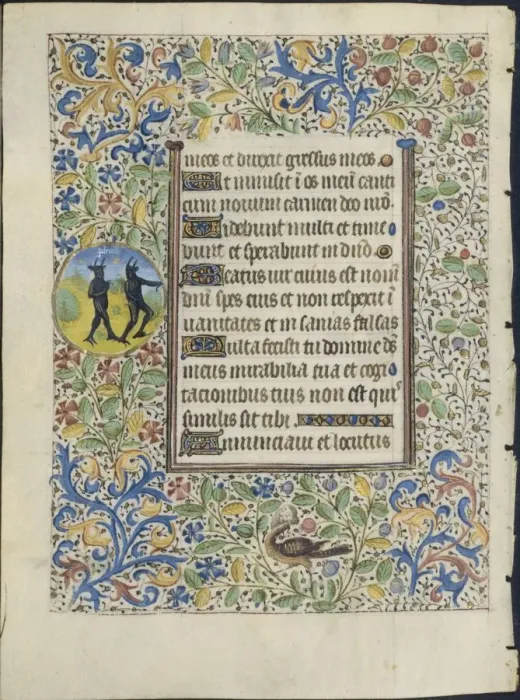 meos et direxit gressus meos.
Et inmisit ī os meū canti
cum novum carmen deo nr̄o.
Videbunt multi et time
bunt et sperabunt in dn̄o.
Beatus vir cuius est nom̄
dn̄i spes eius et non respexit ī
vanitates et insanias falsas
Multa fecisti tu domine ds̄
meus mirabilia tua et cogi
tacionibus tuis non est qui
similis sit tibi.
Annunciavi et locutus